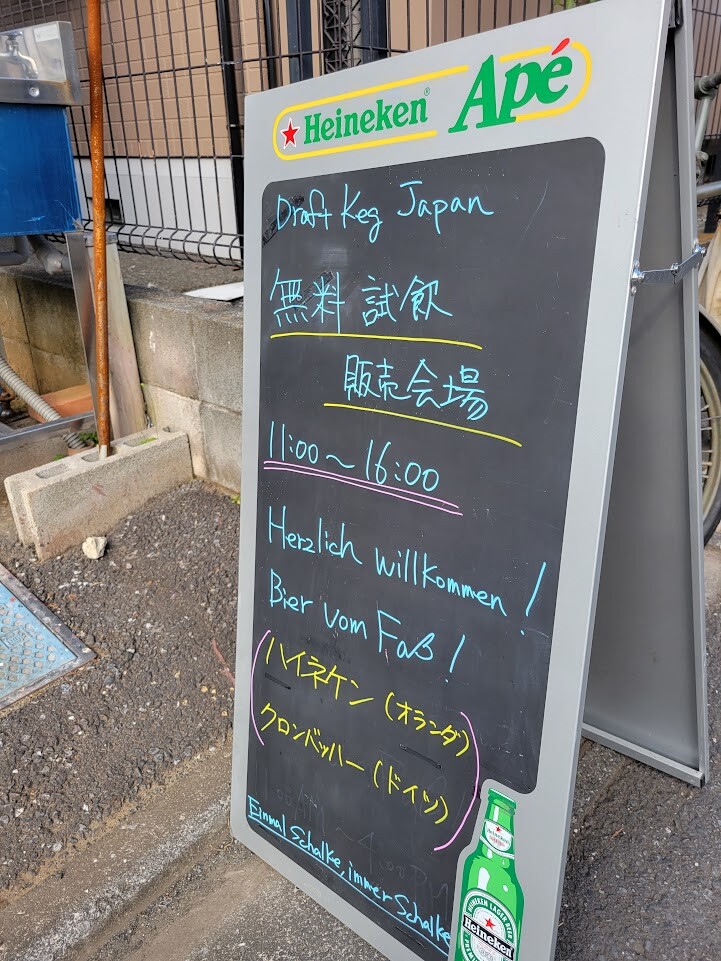 Heineken® Apé
Draft Keg Japan
無料 試飲
販売会場
11:00～16:00
Herzlich willkommen!
Bier vom Faß!
(ハイネケン(オランダ)
クロンバッハー(ドイツ))
Einmal Schalke, immer Schalke
Heineken
HEINEKEN LAGER BEER
Heineken